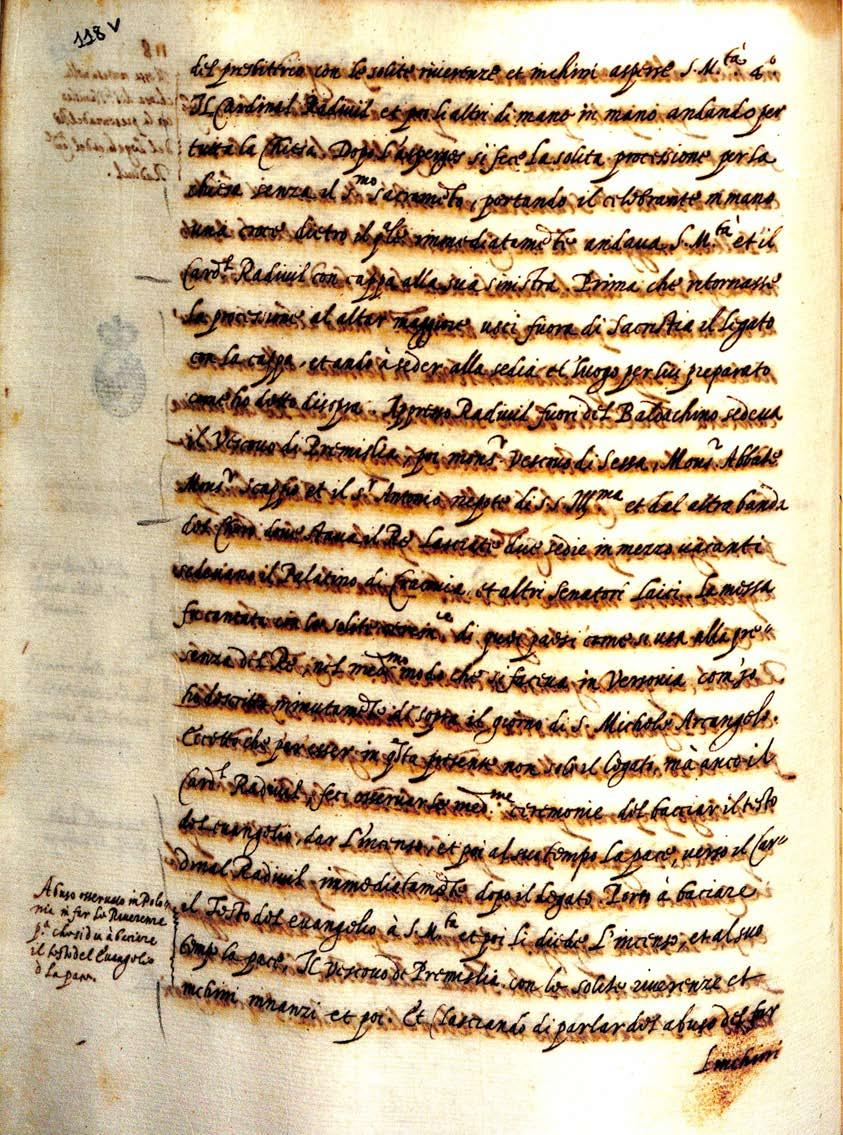 118 v
del presbiterio con le solite riverenze et inchini asperse S. M.tà 4.º
Il Cardinal Radivil et poi li altri di mano in mano andando per
tutta la Chiesa. Dopo l'asperges si fece la solita processione per la
chiesa senza il S.mo sacramẽto, portando il celebrante in mano
una croce dietro il q̃le immediatamẽte andava S. M.tà et il
Card.l Radivil con cappa alla sua sinistra. Prima che ritornasse
la processione al altar maggiore uscì fuora di Sacristia il legato
con la cappa, et andò à seder alla sedia et luogo per lui preparato
come ho detto disopra. Appresso Radivil fuori del Baldachino sedeva
il Vescovo di Premislia, poi mons.r Vescovo di Sessa, Mons.r Abbate
Mons.r scappio et il s.r Antonio nepote di S. S. Ill.ma et dal altra banda
del Choro dove stava il Re lasciate due sedie in mezzo vacanti
sedevano il Palatino di Cracovia, et altri senatori laici. La messa
fu cantata con le solite di quei paesi come si usa alla pre-
senza del Re, nel med.mo modo che si faceva in Versovia, com'io
ho descritto minutamẽte di sopra il giorno di S. Michele Arcangelo.
Eccetto che per esser in q̃sta presente non solo il legato, mà anco il
Card.l Radivil, feci osservar le med.me ceremonie del bacciar il testo
del evangelio, dar l'incenso, et poi al suo tempo la pace, verso il Car-
dinal Radivil immediatamẽte dopo il legato. Portò à baciare
el Testo del evangelio à S. M.tà et poi li diede l'incenso, et al suo
temp. la pace, Il Vescovo de Premislia con le solite riverenze et
inchini innanzi et poi. Et lasciando di parlar del abuso del far
l'inchini
Abuso osservato in Polo-
nia in far le Riverenze
p.a che si dia à baciare
il testo del Evangelio
ò la pace.